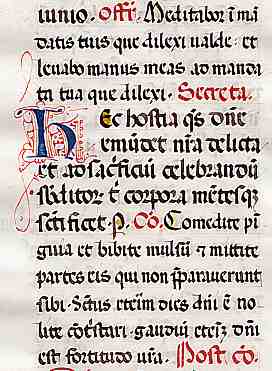 iunio. Offi. Meditabor ī mā
datis tuis que dilexi ualde · et
leuabo manus meas ad manda
ta tua que dilexi. Secreta.
Hec hostia q̄s dn̄e
emūdet nr̄a delicta
et ad sac̄ficiū celebrandū
sbditor̄ t̄ corpora mētesq;
sc̄ificet. p. Co. Comedite pī
guia et bibite mulsū ⁊ mittite
partes eis qui non p̄parauerunt
sibi. Sc̄tus eteīm dies dn̄i ē no
lite cōt̄stari. gaudiū eteīz dn̄i
est fortitudo ur̄a. Post cō.